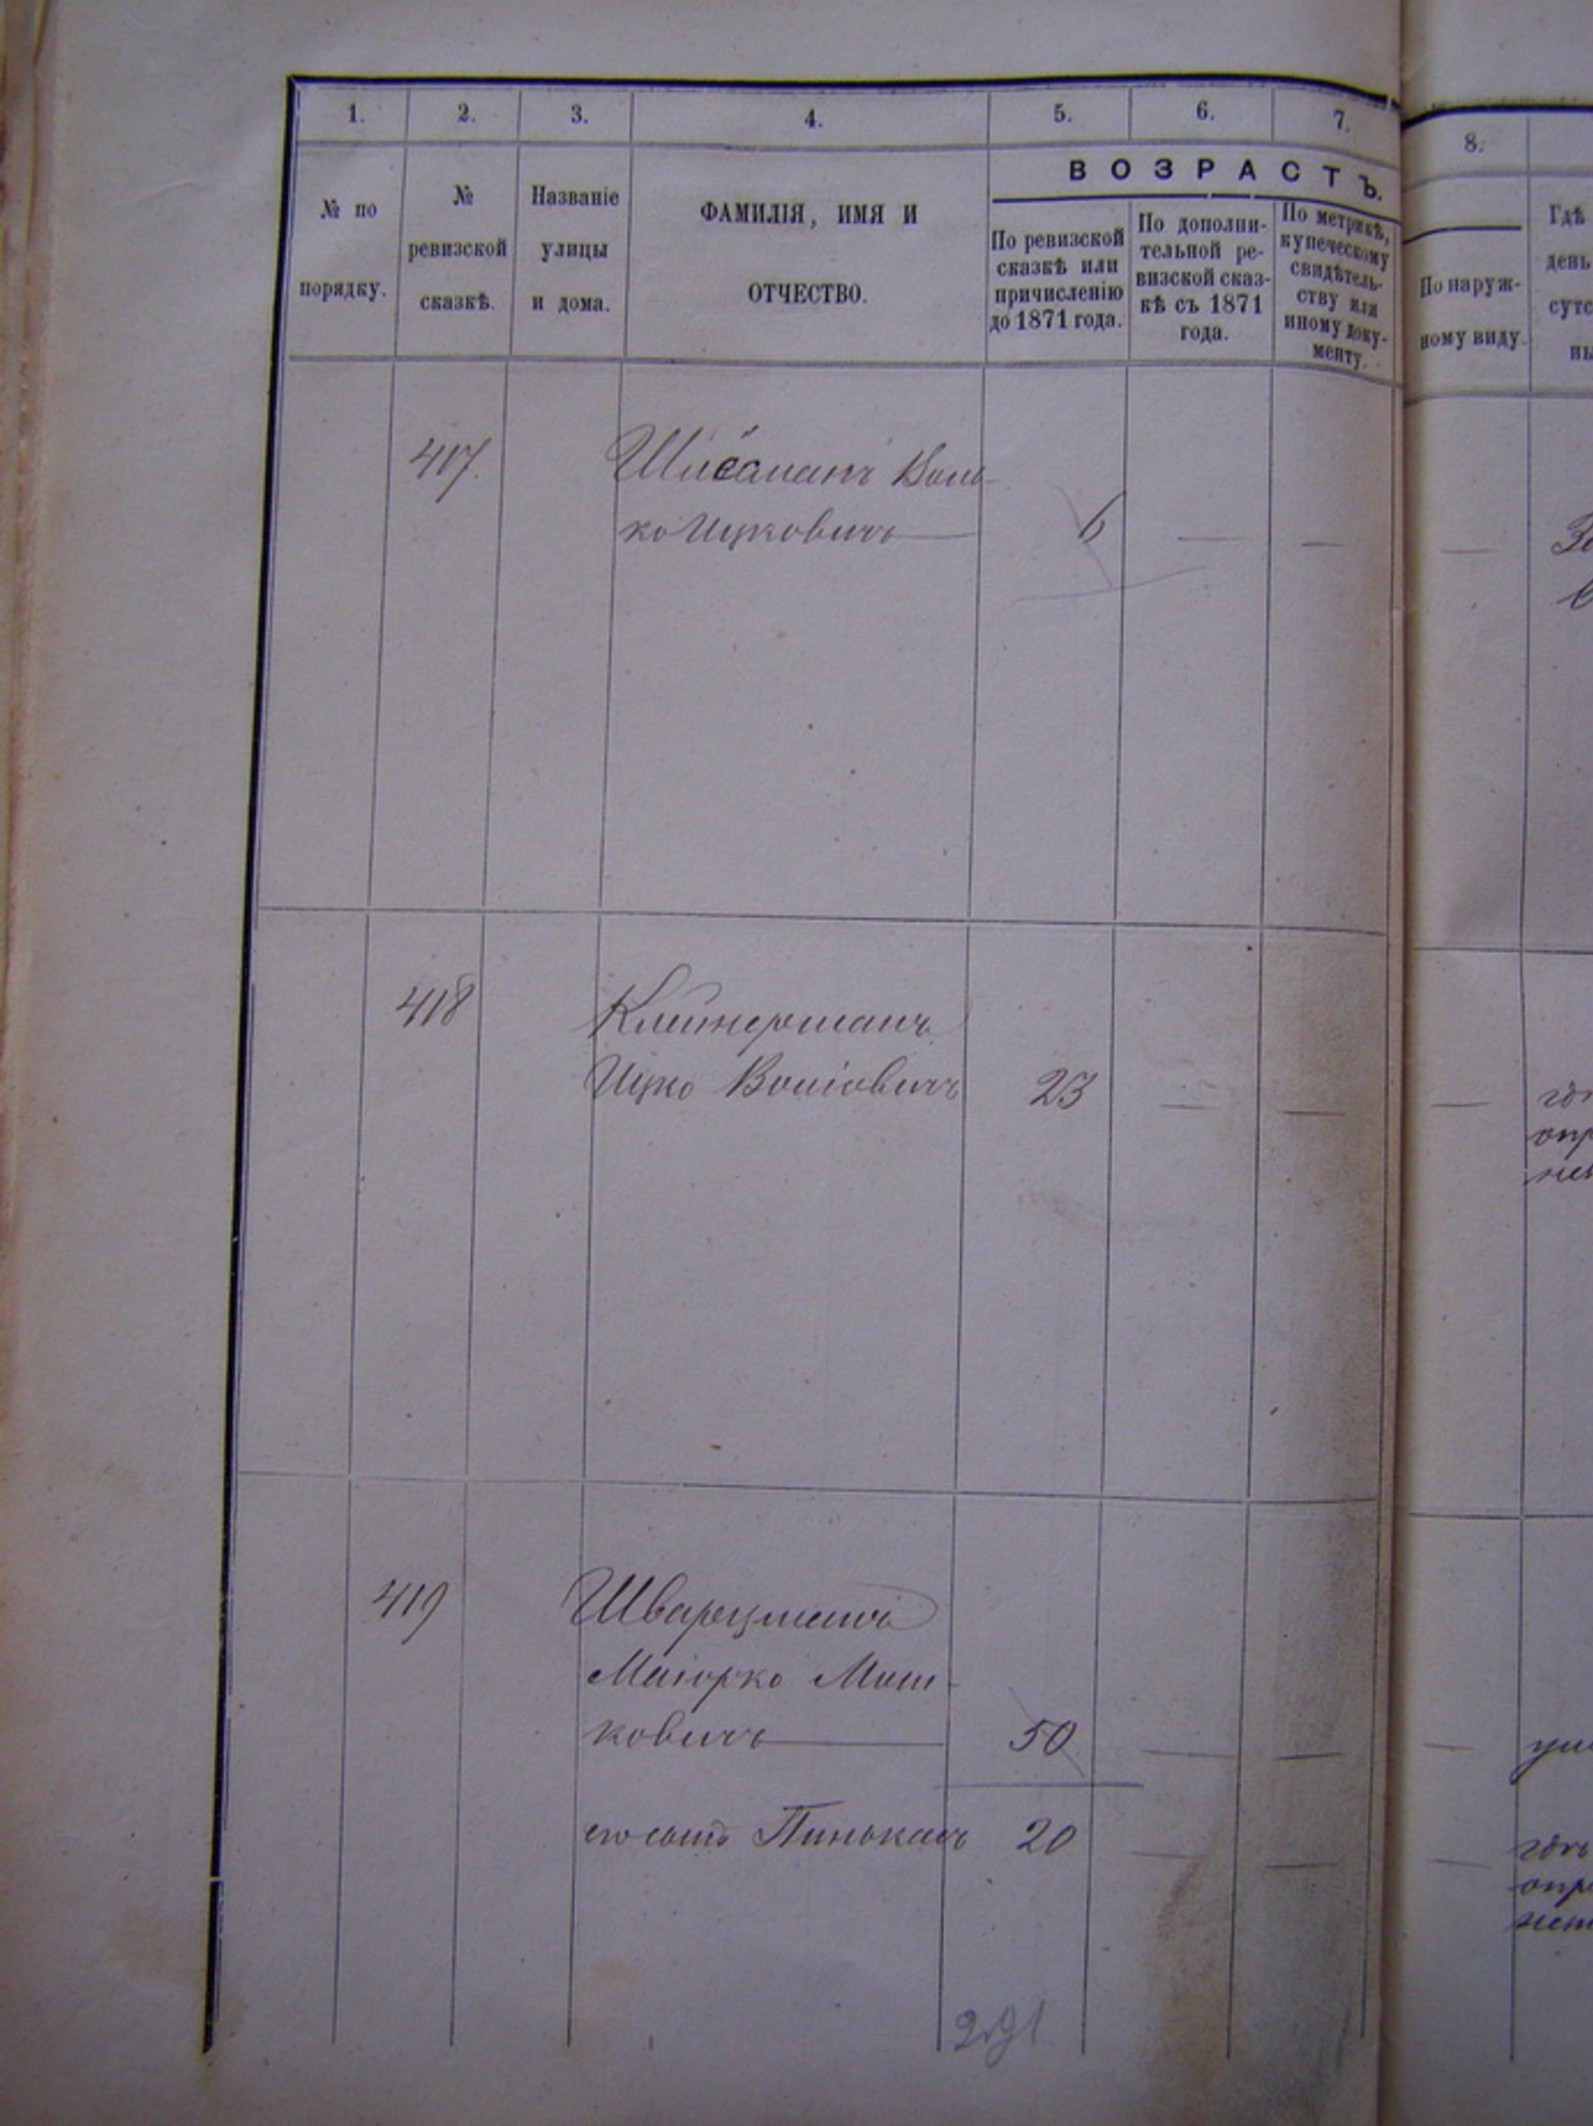 1. 2. 3. 4. 5. 6. 7. 8.
ВОЗРАСТЪ.
№ по порядку.
№ ревизской сказкѣ.
Названіе улицы и дома.
ФАМИЛІЯ, ИМЯ И ОТЧЕСТВО.
По ревизской сказкѣ или причисленію до 1871 года.
По дополни-
тельной ре-
визской сказ-
кѣ съ 1871
года.
По метрикѣ,
купеческому
свидѣтель-
ству или
иному доку-
менту.
По наруж-
ному виду.
Гдѣ
день
сутс
417.
ко Ицковичъ — 6 — — —
418 Клейнерманъ
Ицко Волiовичъ 23 — — —
опр
419 Шварцманъ
Маіорко Мош-
ковичъ — 50 — — —
его сынъ Пинькасъ 20 — — —
опр
291